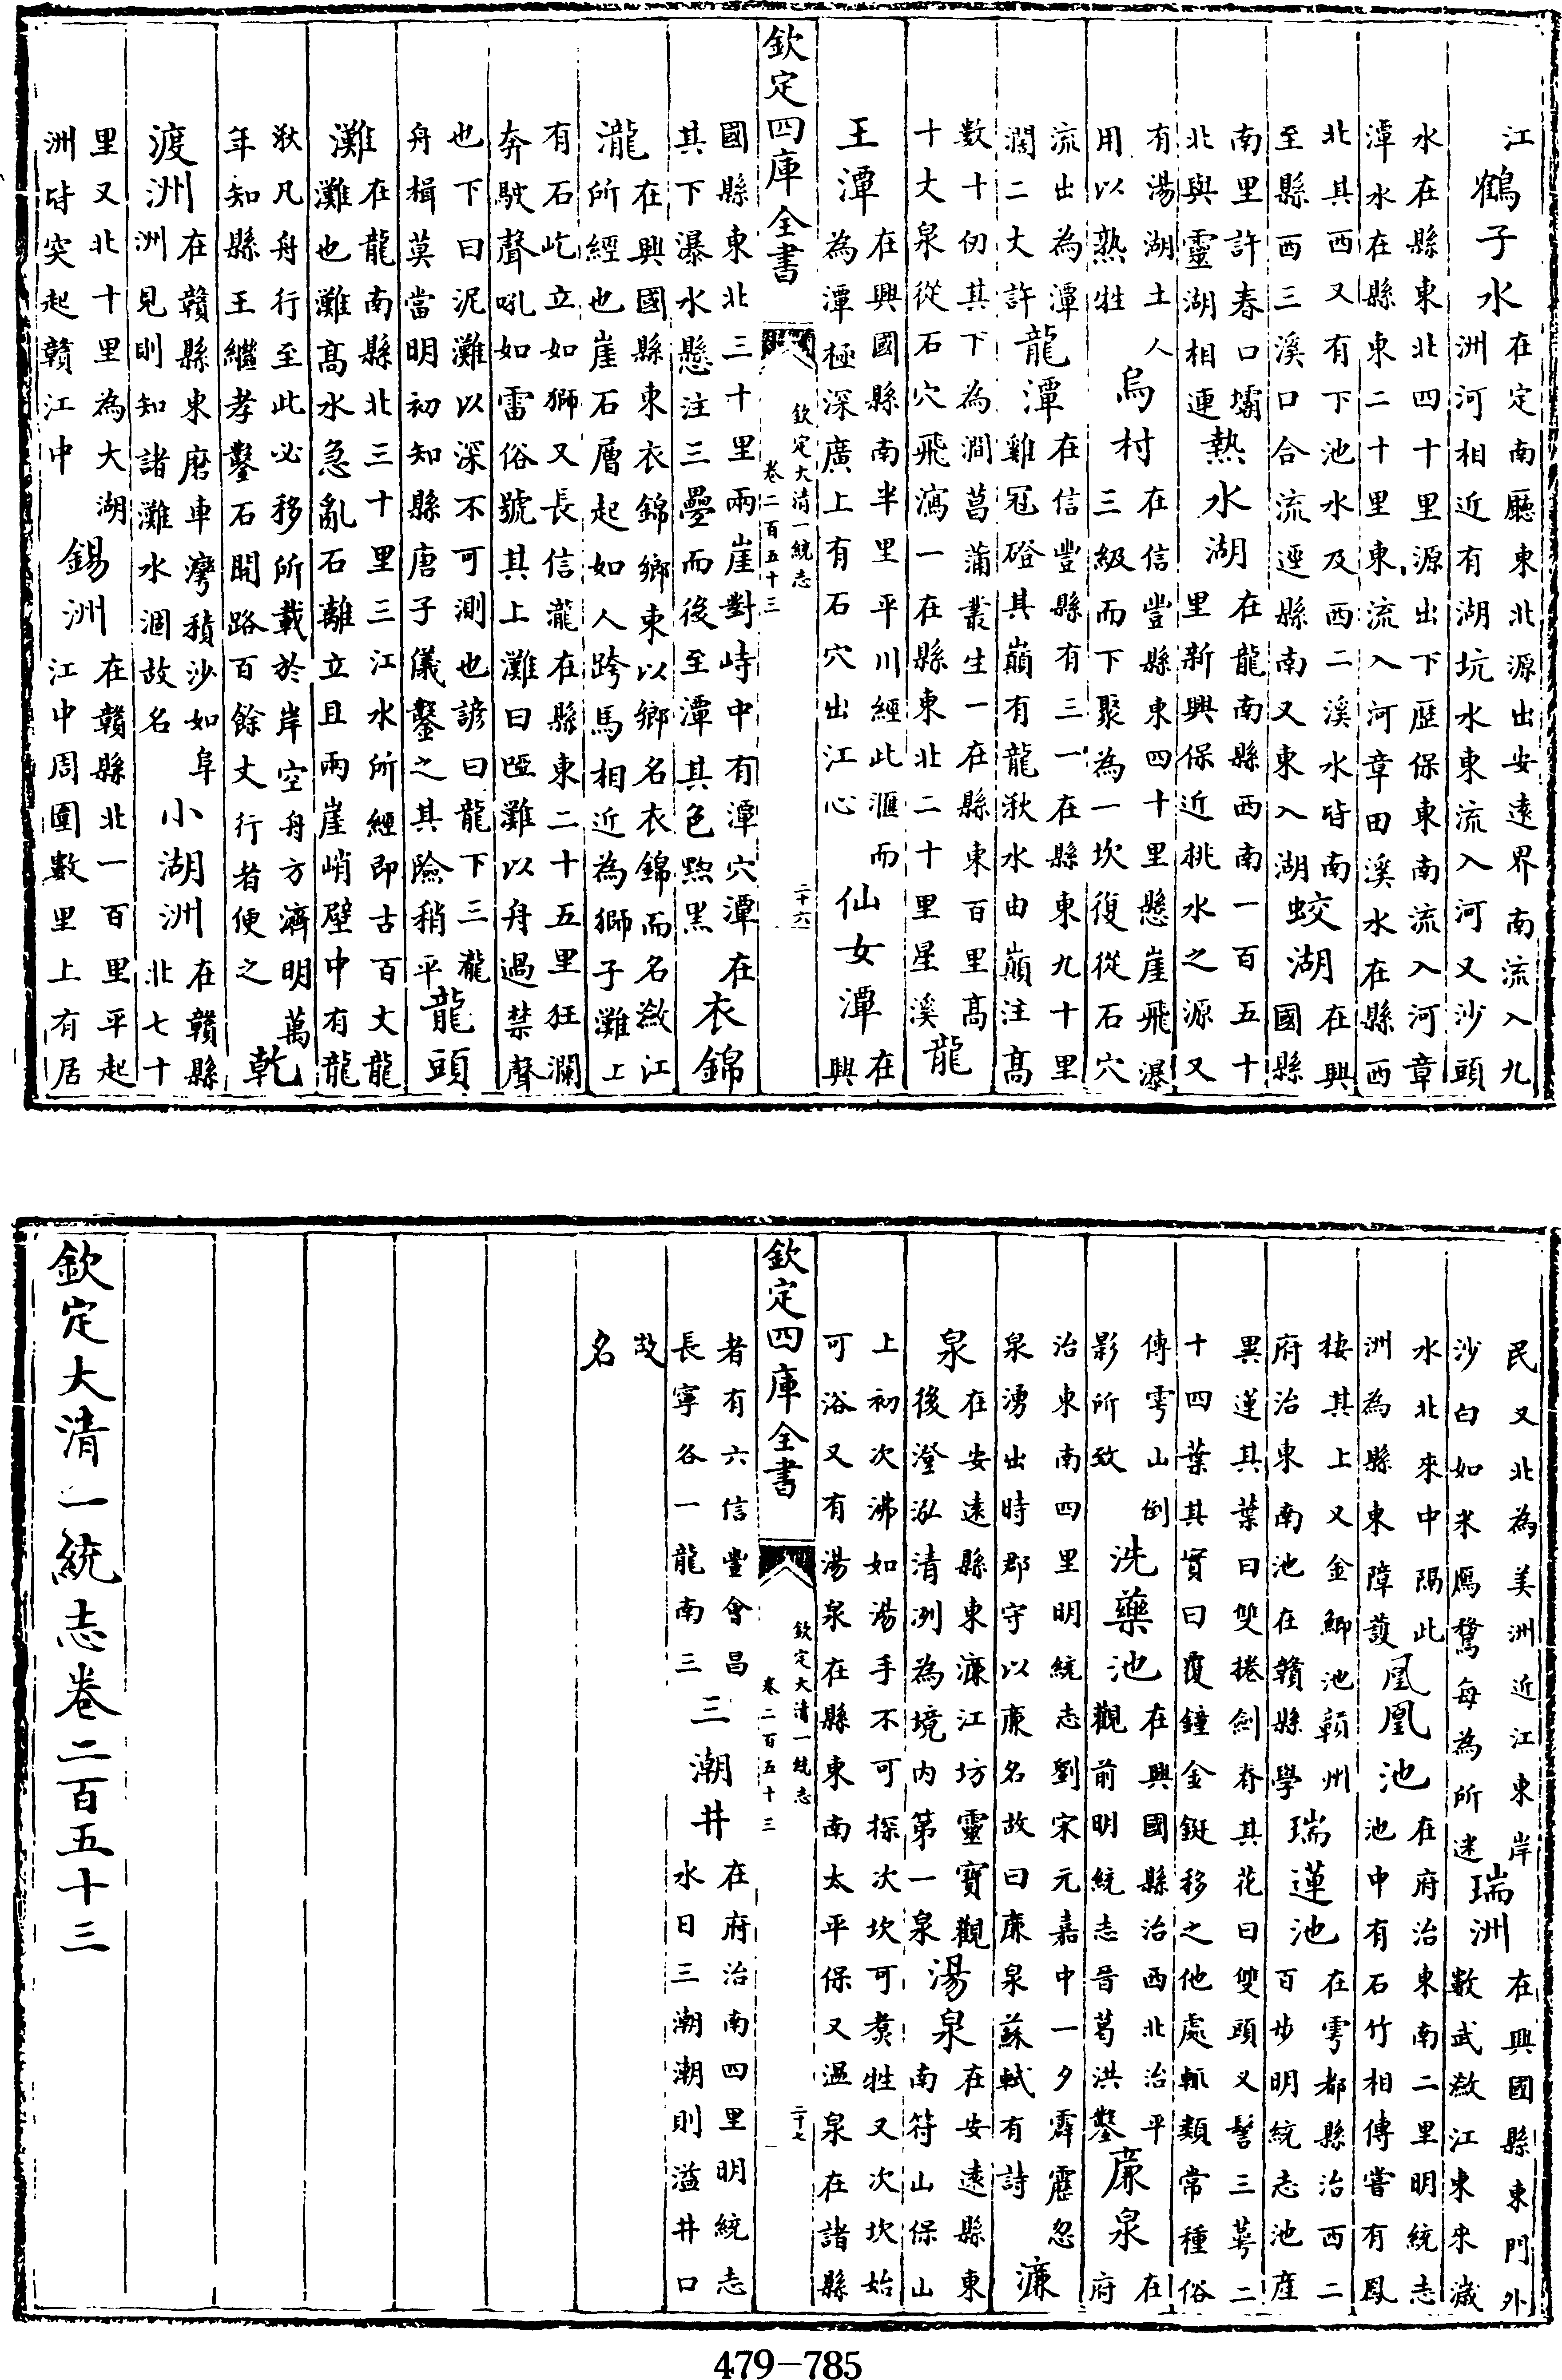 江鶴子水在定南廳東北源出安遠界南流入九洲河相近有湖坑水東流入河又沙頭
水在縣東北四十里源出下歷保東南流入河章潭水在縣東二十里東流入河章田溪水在縣西
北其西又有下池水及西二溪水皆南至縣西三溪口合流逕縣南又東入湖蛟湖在興國縣
南里許春口壩北與靈湖相連熱水湖在龍南縣西南一百五十里新興保近桃水之源又
有湯湖土人用以熟牲烏村在信豐縣東四十里懸崖飛瀑三級而下聚為一坎復從石穴
流出為潭濶二丈許龍潭在信豐縣有三一在縣東九十里雞冠磴其巔有龍湫水由巔注髙
數十仞其下為澗菖蒲叢生一在縣東百里髙十丈泉從石穴飛瀉一在縣東北二十里星溪龍
王潭在興國縣南半里平川經此滙而為潭極深廣上有石穴出江心仙女潭在興
欽定四庫全書
欽定大清一統志
卷二百五十三
二十六
國縣東北三十里兩崖對峙中有潭穴潭在其下瀑水懸注三疊而後至潭其色黝黑衣錦
瀧在興國縣東衣錦鄉東以鄉名衣錦而名瀲江所經也崖石層起如人跨馬相近為獅子灘上
有石屹立如獅又長信瀧在縣東二十五里狂瀾奔駛聲吼如雷俗號其上灘曰啞灘以舟過禁聲
也下曰泥灘以深不可測也諺曰龍下三瀧舟楫莫當明初知縣唐子儀鑿之其險稍平龍頭
灘在龍南縣北三十里三江水所經即古百丈龍灘也灘髙水急亂石離立且兩崖峭壁中有龍
湫凡舟行至此必移所載於岸空舟方濟明萬年知縣王繼孝鑿石開路百餘丈行者便之乾
渡洲在贛縣東磨車灣積沙如阜洲見則知諸灘水涸故名小湖洲在贛縣北七十
里又北十里為大湖洲皆突起贛江中錫洲在贛縣北一百里平起江中周圍數里上有居
民又北為美洲近江東岸沙白如米鴈鶩每為所迷瑞洲在興國縣東門外數武瀲江東來瀎
水北來中隔此洲為縣東障護鳳凰池在府治東南二里明統志池中有石竹相傳嘗有鳳
棲其上又金鯽池贛州府治東南池在贛縣學瑞蓮池在雩都縣治西二百步明統志池産
異蓮其葉曰雙捲劍脊其花曰雙頭又髻三萼二十四葉其實曰覆鐘金鋌移之他處輒類常種俗
傳雩山倒影所致洗藥池在興國縣治西北治平觀前明統志晉葛洪鑿廉泉在府
治東南四里明統志劉宋元嘉中一夕霹靂忽泉湧出時郡守以廉名故曰廉泉蘇軾有詩濂
泉在安遠縣東濂江坊靈寶觀後澄泓清冽為境内第一泉湯泉在安遠縣東南符山保山
上初次沸如湯手不可探次坎可煑牲又次坎始可浴又有湯泉在縣東南太平保又温泉在諸縣
欽定四庫全書
欽定大清一統志
卷二百五十三
二十七
者有六信豐會昌長寧各一龍南三三潮井在府治南四里明統志水日三潮潮則溢井口
故名
欽定大清一統志卷二百五十三
479-785